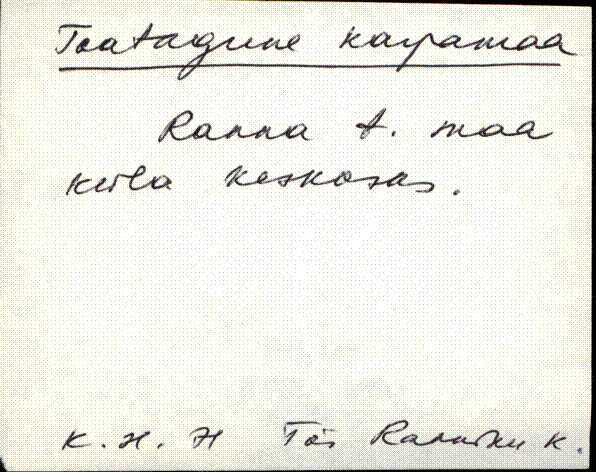 Toatagune karjamaa
Ranna t. maa
küla keskosas.
K. H. H Tõs Ranniku k.